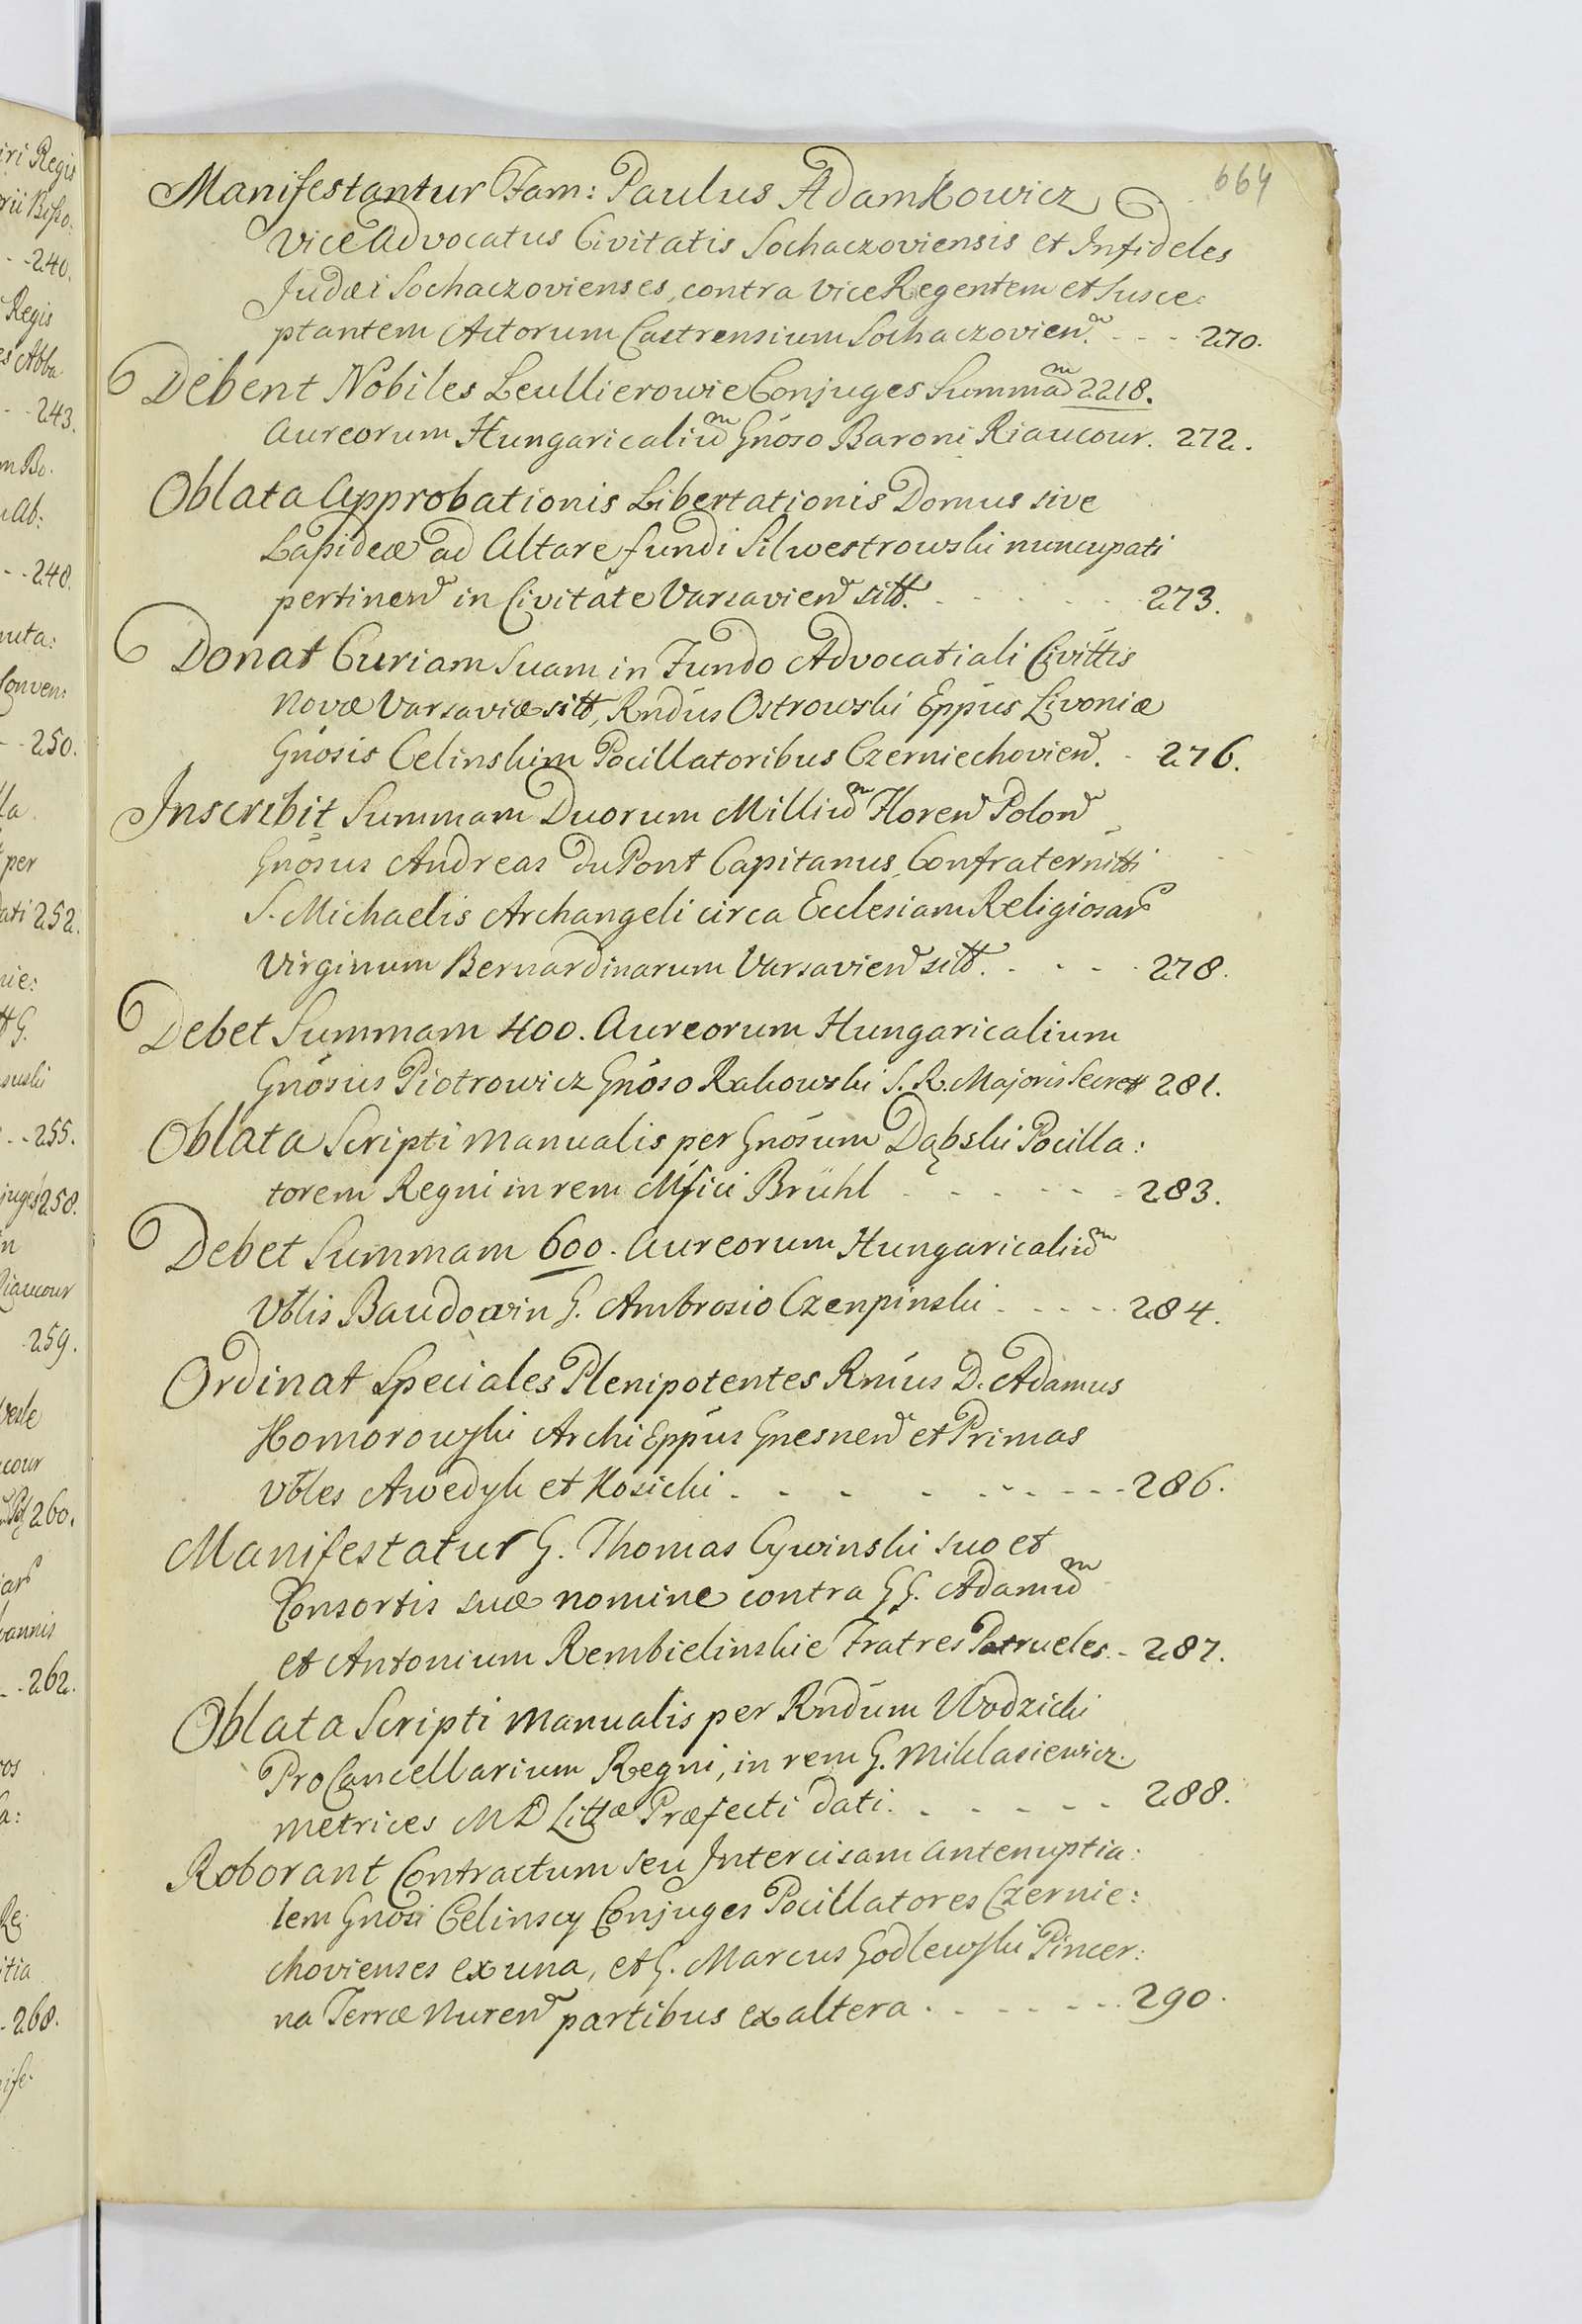 664
Manifestantur Fam: Paulus Adamkowicz
Vice Advocatus Civitatis Sochaczoviensis et Infideles
Judæi Sochaczovienses, contra ViceRegentem et Susce:
ptantem Actorum Castrensium Sochaczovien. - - - 270.
Debent Nobiles Leullierowie Conjuges Summam 2218.
Aureorum Hungaricalium Gnoso Baroni Riaucour. 272.
Oblata Approbationis Libertationis Domus sive
Lapideæ ad Altare fundi Silwestrowski nuncupati
pertinen in Civitate Varsavien sitt. - - - - - 273.
Donat Curiam Suam in Fundo Advocatiali Civittis
Novæ Varsaviæ sitt, Rndus Ostrowski Eppus Livoniæ
Gnosis Celinskim Pocillatoribus Czerniechovien. - 276.
Inscribit Summam Duorum Millium Floren Polon
Gnosus Andreas DuPont Capitanus, Confraternitti
S. Michaelis Archangeli circa Ecclesiam Religiosar
Virginum Bernardinarum Varsavien sitt. - - - - 278.
Debet Summam 400. Aureorum Hungaricalium
Gnosus Piotrowicz Gnoso Rakowski S. R. Majoris Secrett 281.
Oblata Scripti Manualis per Gnosum Dąbski Pocilla:
torem Regni in rem Mfici Brühl - - - - - - 283.
Debet Summam 600. Aureorum Hungaricalium
Vblis Baudowin G. Ambrosio Czenpinski - - - - - 284.
Ordinat Speciales Plenipotentes Rmus D. Adamus
Komorowski ArchiEppus Gnesnen et Primas
Vbles Awedyk et Kosicki - - - - - - - - - 286.
Manifestatur G. Thomas Cywinski suo et
Consortis suæ nomine contra GG. Adamum
et Antonium Rembielinskie Fratres Patrueles. - 287.
Oblata Scripti Manualis per Rndum Wodzicki
ProCancellarium Regni, in rem G. Miklasiewicz.
metrices MD Littæ Præfecti dati. - - - - - 288.
Roborant Contractum seu Intercisam antenuptia:
lem Gnosi Celinscy Conjuges Pocillatores Czernie:
chovienses ex una, et G. Marcus Godlewski Pincer:
na Terræ Nuren partibus ex altera - - - - - - 290.